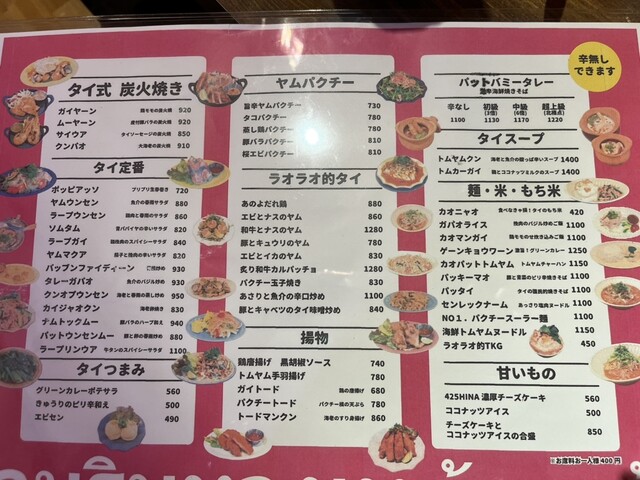 タイ式 炭火焼き
ガイヤーン 鶏モモの炭火焼 920
ムーヤーン 皮付豚バラの炭火焼 920
サイウア タイソーセージの炭火焼 850
クンパオ 大海老の炭火焼 910
タイ定番
ポッピアッソ プリプリ生春巻き 720
ヤムウンセン 魚介の春雨サラダ 880
ラープウンセン 鶏肉と春雨のサラダ 880
ソムタム 青パパイヤの辛いサラダ 820
ラープガイ 鶏挽肉のスパイシーサラダ 840
ヤムマクア 茄子と挽肉の辛いサラダ 820
パップンファイディーン 930
タレーガパオ 魚介のバジル炒め 930
クンオプウンセン 海老と春雨の蒸し炒め 950
カイジャオクン 海老卵焼き 830
ナムトックムー 豚バラのハーブ和え 940
パットウンセンムー 豚と卵の春雨炒め 880
ラープリンウア 牛タンのスパイシーサラダ 1100
タイつまみ
グリーンカレーポテサラ 560
きゅうりのピリ辛和え 500
エビセン 490
ヤムパクチー
旨辛ヤムパクチー 730
タコパクチー 780
蒸し鶏パクチー 780
豚バラパクチー 810
桜エビパクチー 810
ラオラオ的タイ
あのよだれ鶏 880
エビとナスのヤム 880
和牛とナスのヤム 1280
豚とキュウリのヤム 780
エビとイカのヤム 880
炙り和牛カルパッチョ 1280
パクチー玉子焼き 880
あさりと魚介の辛口炒め 1100
豚とキャベツのタイ味噌炒め 840
揚物
鶏唐揚げ 黒胡椒ソース 740
トムヤム手羽揚げ 780
ガイトード 鶏の唐揚げ 680
パクチートード パクチー様の天ぷら 780
トードマンクン 海老のすり身揚げ 860
辛無し
できます
パットバミータレー
海鮮焼きそば
辛なし 初級 中級 超上級
(3倍) (6倍) (北極点)
1100 1130 1170 1220
タイスープ
トムヤムクン 海老と魚介の酸っぱ辛いスープ 1400
トムカーガイ 鶏とココナッツミルクのスープ 1400
麺・米・もち米
カオニャオ 食べなきゃ損!タイのもち米 420
ガパオライス 挽肉のバジル炒めのご飯 1100
カオマンガイ 鶏モモのせ炊き込みご飯 1100
ゲーンキョウワーン 濃旨!グリーンカレー 1250
カオパットトムヤム トムヤムチャーハン 1250
パッキーマオ 豚と青菜のピリ辛焼きそば 1100
パッタイ タイの国民的焼きそば 1100
センレックナーム あっさり塩味ヌードル 1100
NO1.パクチースーラー麺 1100
海鮮トムヤムヌードル 1150
ラオラオ的TKG 450
甘いもの
425SHINA 濃厚チーズケーキ 560
ココナッツアイス 500
チーズケーキと
ココナッツアイスの合盛 850
※お席料お一人様400円